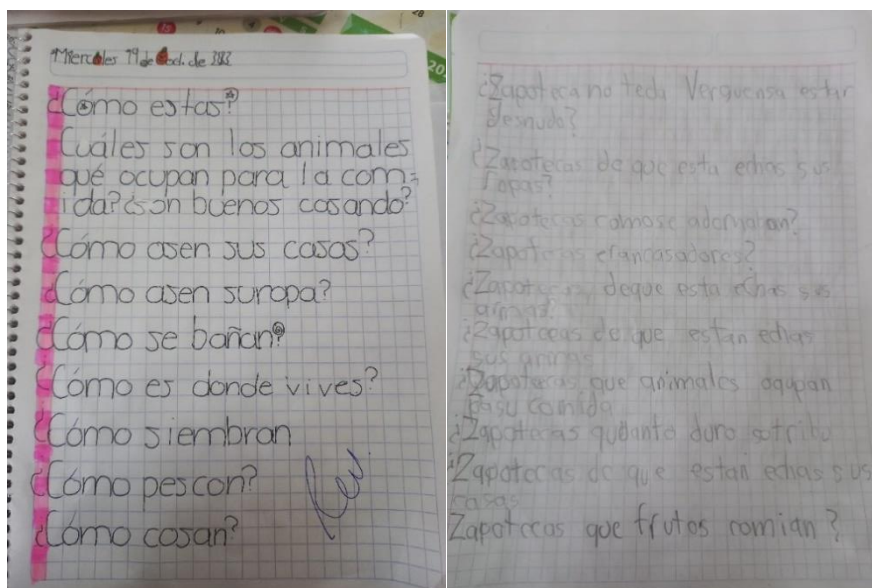 Miercoles 19 de
¿Cómo estas?
Cuáles son los animales
qué ocupan para la com-
ida? ¿son buenos casando?
¿Cómo asen sus casas?
¿Cómo asen suropa?
¿Cómo se bañan?
¿Cómo es donde vives?
¿Cómo siembran
¿Cómo pescan?
¿Cómo casan?
Rev.
¿Zapoteca no teda Verguensa estar
desnudo?
¿Zapotecas de que esta echas sus
ropas?
¿Zapotecas como se
¿Zapotecas erancasadores?
¿Zapotecas, deque esta echas sus
armas?
¿Zapotecas de que estan echas
sus armas
que animales ocupan
pasu comida
¿Zapotecas duro
¿Zapotecas de que estan echas sus
casas
Zapotecas que frutos comian?